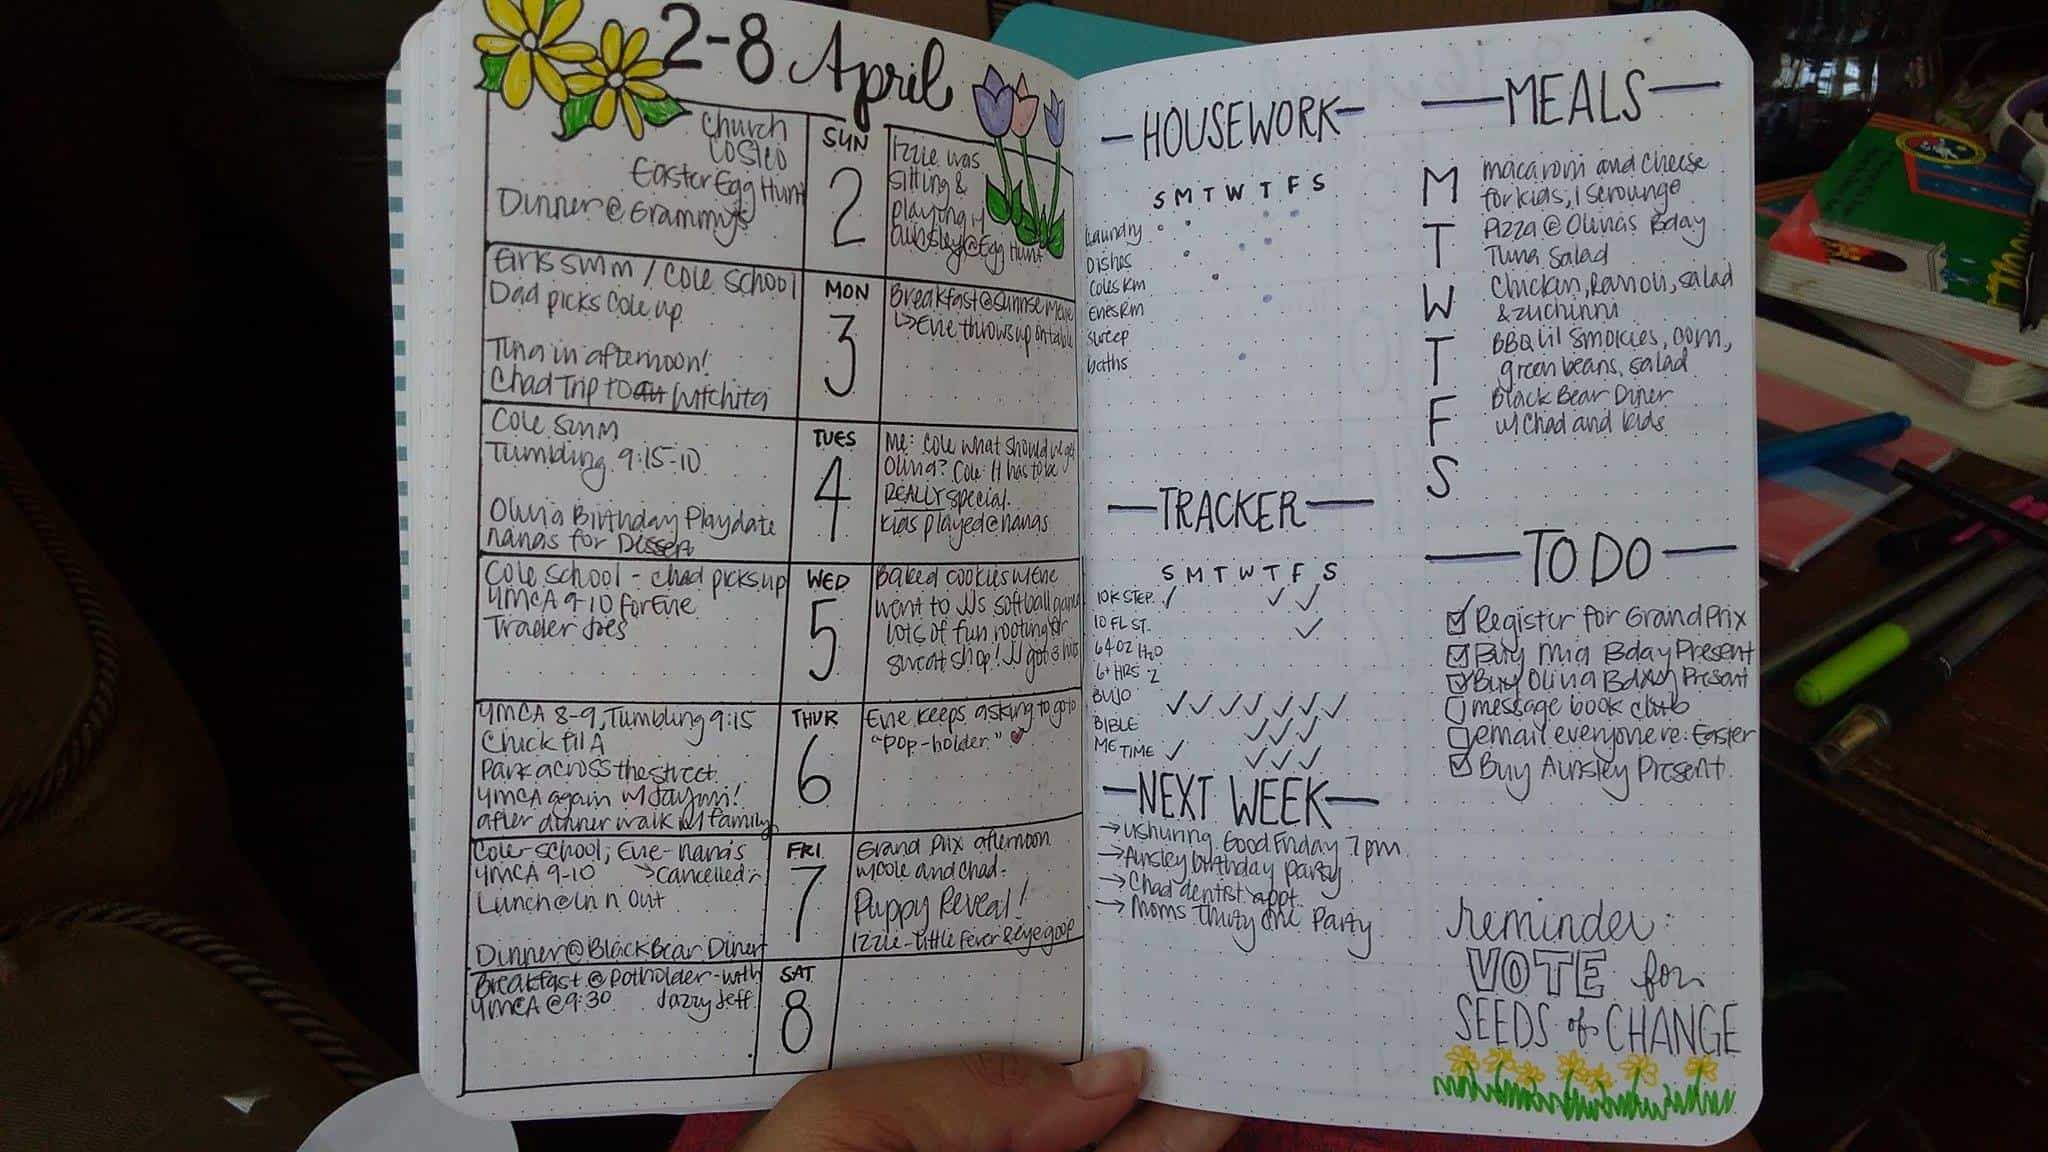 2-8 April
Church
Costco
Easter Egg Hunt
Dinner @ Grammy's
SUN
2
Izzie was
sitting &
playing w/
Ainsley @ Egg Hunt
Girls swim / Cole school
Dad picks Cole up
Tina in afternoon!
Chad Trip to Wichita
MON
3
Breakfast @ sunrise
↳ Evie throws up on table
Cole swim
Tumbling 9:15-10
Olivia Birthday Playdate
nanas for Dessert
TUES
4
Me: Cole what should we get
Olivia? Cole: It has to be
REALLY special.
kids played @ nanas
Cole school - chad picks up
YMCA 9-10 for Evie
Trader Joes
WED
5
Baked cookies w/ Evie
went to JJs softball game
lots of fun rooting for
sweat shop! JJ got 3 hits
YMCA 8-9, Tumbling 9:15
Chick fil A
Park across the street
YMCA again w/ Jaymi!
after dinner walk w/ family
THUR
6
Evie keeps asking to go to
"pop-holder." ♥
Cole-school, Evie-nana's
YMCA 9-10 → Cancelled :(
Lunch @ In n Out
Dinner @ Black Bear Diner
FRI
7
Grand Prix afternoon
w/ Cole and Chad.
Puppy Reveal!
Izzie-little fever & eye goop
Breakfast @ Potholder-with
YMCA @ 9:30 Jazzy Jeff
SAT
8
HOUSEWORK
S M T W T F S
Laundry
Dishes
Coles Rm
Evies Rm
sweep
baths
TRACKER
S M T W T F S
10K STEP ✓ ✓ ✓
10 FL ST. ✓
64 OZ H2O
6+ HRS Z
BUJO ✓ ✓ ✓ ✓ ✓ ✓ ✓
BIBLE ✓ ✓ ✓
ME TIME ✓ ✓ ✓ ✓
NEXT WEEK
→ Ushuring Good Friday 7pm
→ Ainsley birthday party
→ Chad dentist appt.
→ Moms Thirty One Party
MEALS
M macaroni and cheese
for kids, I scrounge
T Pizza @ Olivias Bday
Tuna Salad
W Chicken, Ravioli, salad
& zuchinni
T BBQ lil Smokies, corn,
green beans, salad
F Black Bear Diner
w/ Chad and kids
S
TO DO
☑ Register for Grand Prix
☑ Buy Mia Bday Present
☑ Buy Olivia Bday Present
☐ message book club
☐ email everyone re: Easter
☑ Buy Ainsley Present
reminder:
VOTE for
SEEDS of CHANGE